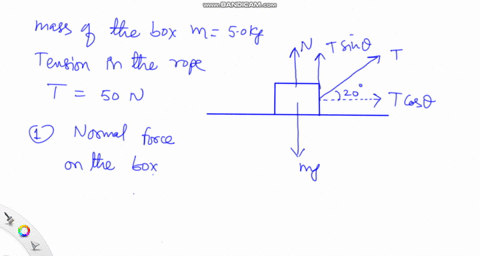 www.BANDICAM.com
mass of the box m = 5.0kg
Tension in the rope
T = 50 N
① Normal force
on the box
N
T sinθ
T
20°
T cosθ
mg